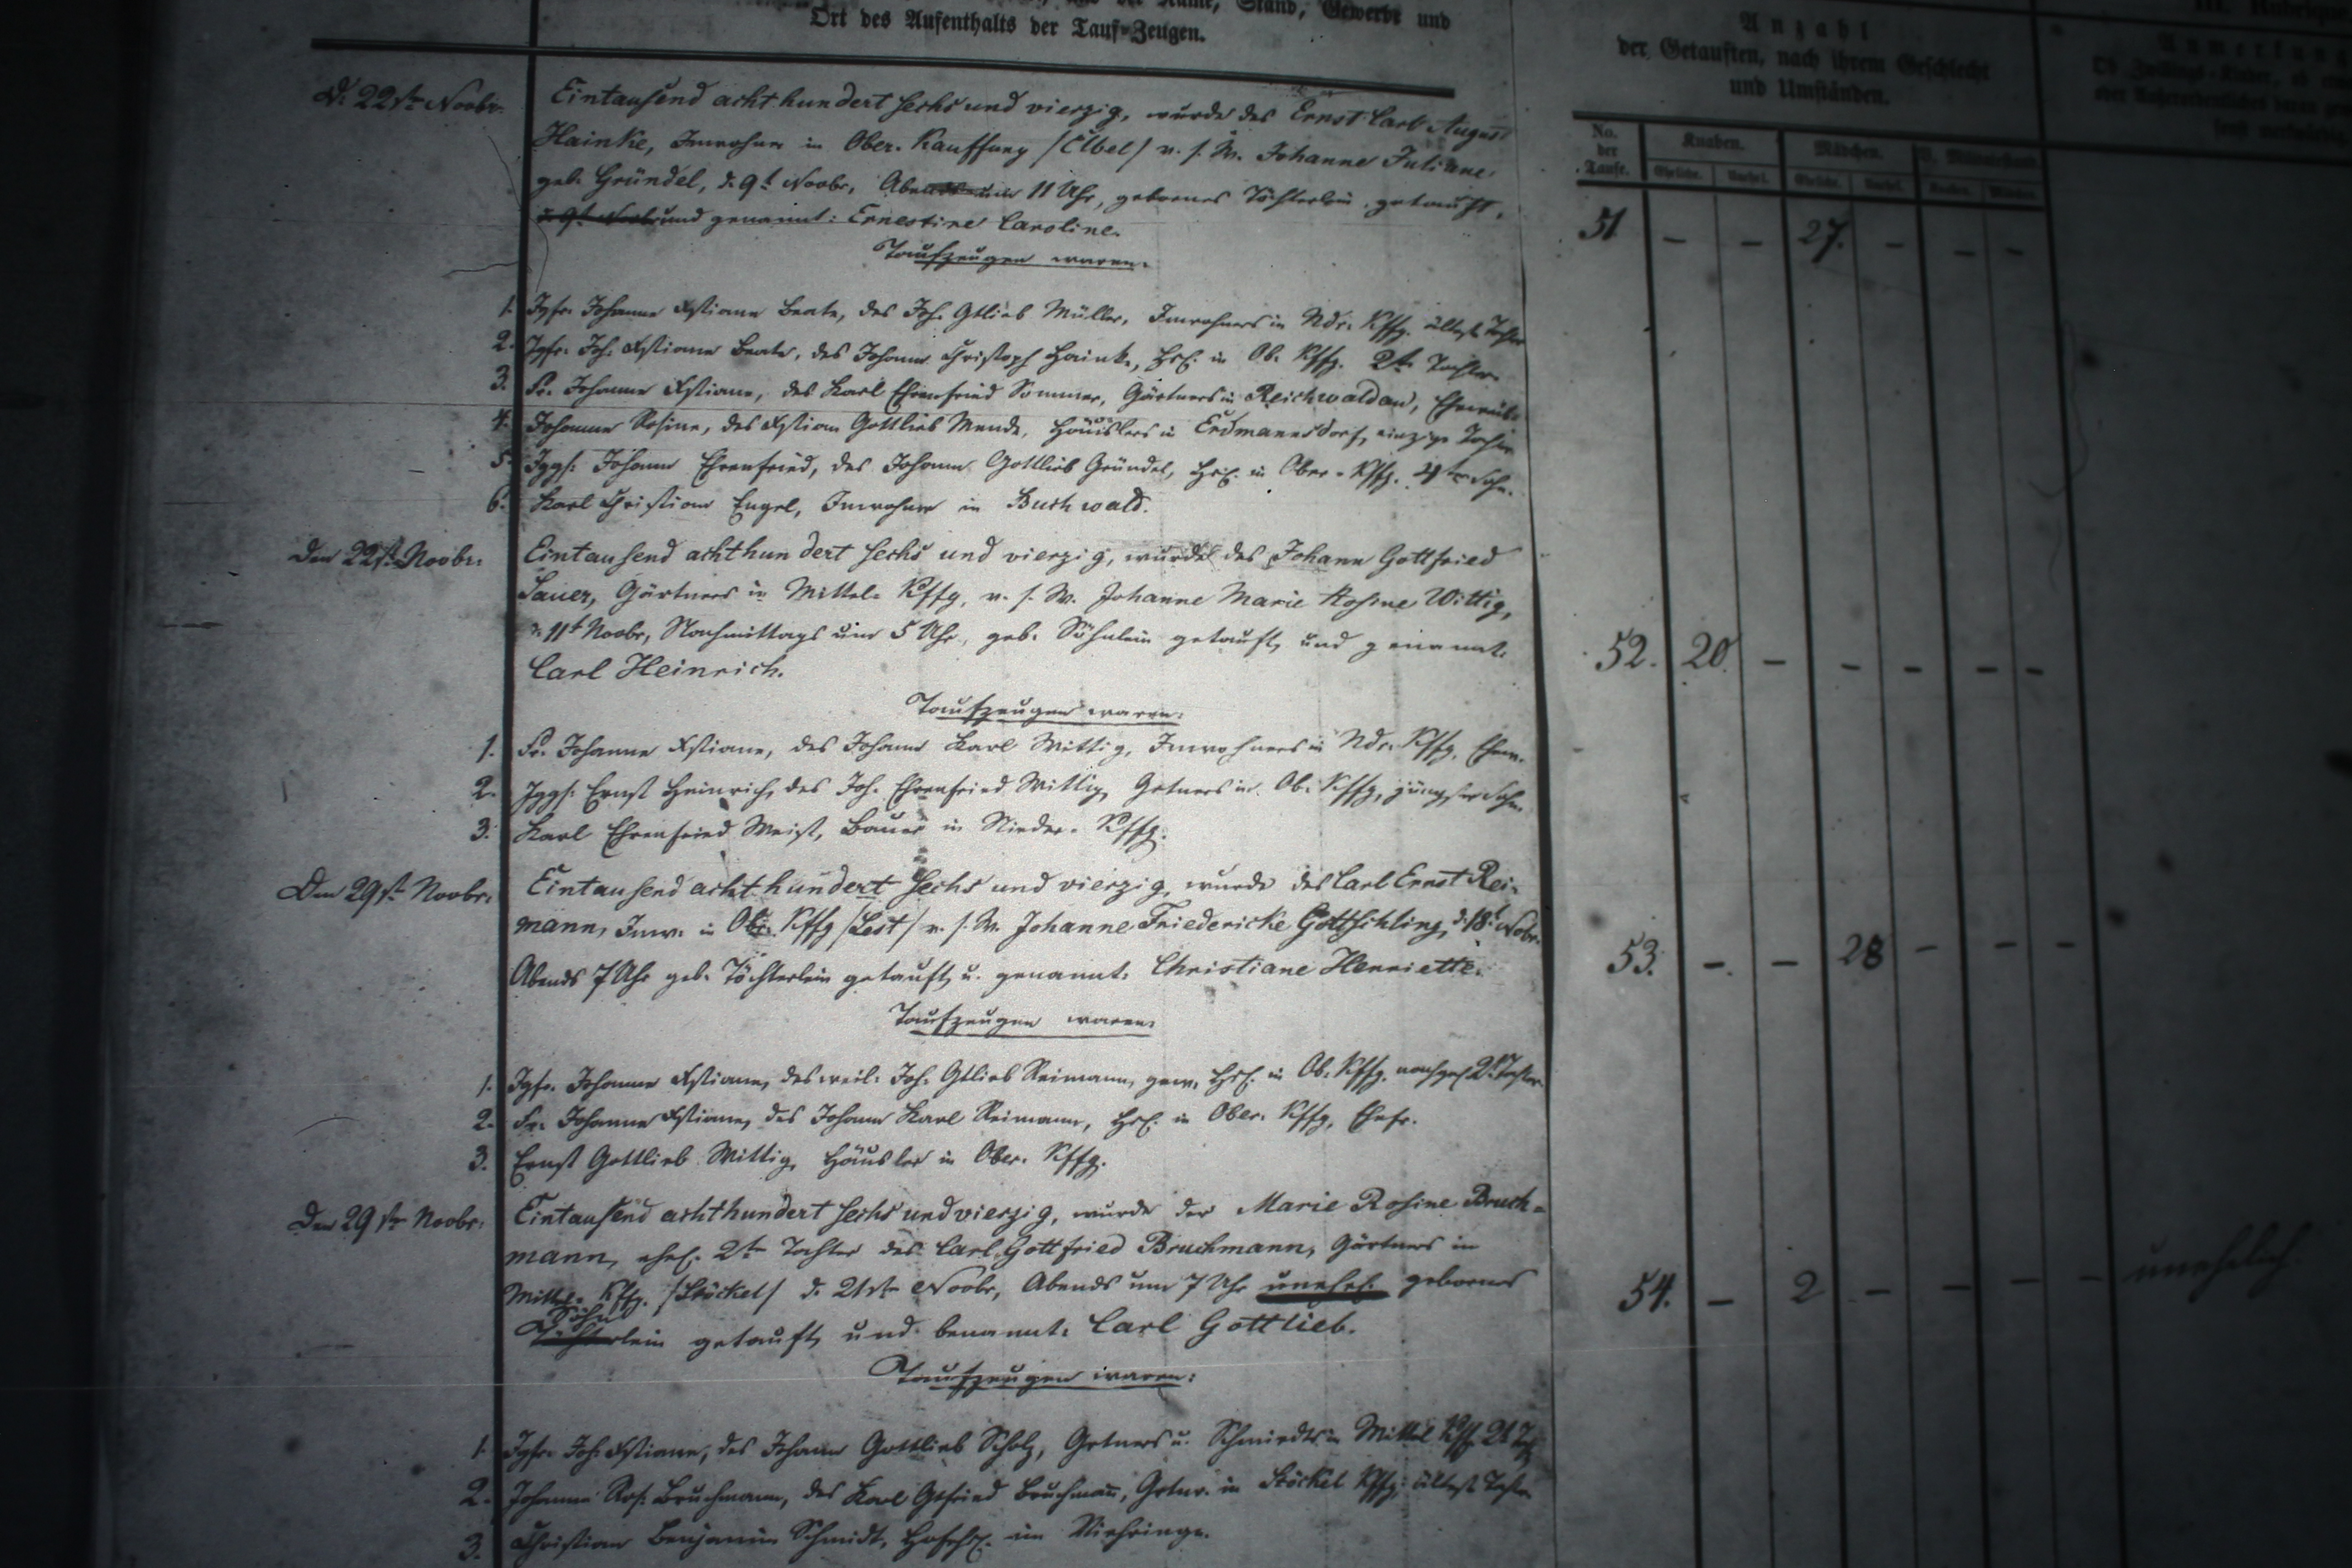 Name, Stand, Gewerbe und
Ort des Aufenthalts der Tauf-Zeugen.
Anzahl
der Getauften, nach ihrem Geschlecht
und Umständen.
No. der Taufe.
Knaben.
Mädchen.
d. 22ste Novbr. Eintausend acht hundert sechs und vierzig, wurde des Ernst Carl August
Hainke, Inwohner in Ober-Kauffung /Elbel/ v. s. W. Johanne Juliane
geb. Gründel, d. 9t Novbr, Abends um 11 Uhr, gebornes Töchterlein getauft,
d. 9t Novbr und genannt: Ernestine Caroline.
51 – – 27. – – –
Taufzeugen waren:
1. Jgfr. Johanne Xstiane Beate, des Joh. Gtlieb Müller, Inwohners in Ndr. Kffg. älteste Tochter
2. Jgfr. Joh. Xstiane Beate, des Johann Christoph Hainke, Hsl. in Ob. Kffg. 2te Tochter.
3. Fr. Johanne Xstiane, des Karl Ehrenfried Sommer, Gärtners in Reichwaldau,
4. Johanne Rosine, des Xstian Gottlieb Mende, Häuslers in Erdmannsdorf, einzige Tochter
5. Jggs. Johann Ehrenfried, des Johann Gottlieb Gründel, Hsl. in Ober-Kffg. 4ter Sohn.
6. Karl Christian Engel, Inwohner in Buchwald.
Den 22st. Novbr. Eintausend achthundert sechs und vierzig, wurde des Johann Gottfried
Sauer, Gärtners in Mittel-Kffg, v. s. W. Johanne Marie Rosine Wittig,
d. 11t Novbr, Nachmittags um 5 Uhr, geb. Söhnlein getauft, und genannt:
Carl Heinrich.
52. 20. – – – – –
Taufzeugen waren:
1. Fr. Johanne Xstiane, des Johann Karl Wittig, Inwohners in Ndr. Kffg, Ehew.
2. Jggs. Ernst Heinrich, des Joh. Ehrenfried Wittig, Grtners in Ob. Kffg, jüngster Sohn.
3. Karl Ehrenfried Weist, Bauer in Nieder-Kffg.
Den 29st. Novbr. Eintausend acht hundert sechs und vierzig, wurde des Carl Ernst Rei-
mann, Inw. in Ob. Kffg /Lest/ v. s. W. Johanne Friedericke Gottschling, d. 18t Novbr.
Abends 7 Uhr geb. Töchterlein getauft, u. genannt: Christiane Henriette.
53. – – 28 – – –
Taufzeugen waren:
1. Jgfr. Johanne Xstiane, des weil. Joh. Gtlieb Reimann, gew. Hsl. in Ob. Kffg. nachgel. 2t Tochter
2. Fr. Johanne Xstiane, des Johann Karl Reimann, Hsl. in Ober-Kffg, Ehefr.
3. Ernst Gottlieb Wittig, Häusler in Ober-Kffg.
Den 29ste Novbr. Eintausend achthundert sechs und vierzig, wurde der Marie Rosine Bruch-
mann, ehel. 2te Tochter des Carl Gottfried Bruchmann, Gärtners in
Mittel-Kffg. /Stöckel/ d. 21ste Novbr, Abends um 7 Uhr unehel. gebornes
Söhn
Töchterlein getauft, und benannt: Carl Gottlieb.
54. – 2 – – – – unehelich
Taufzeugen waren:
1. Jgfr. Joh. Xstiane, des Johann Gottlieb Scholz, Grtners u. Schmiedts in Mittel Kffg. 2t
2. Johanne Ros. Bruchmann, des Karl Gtfried Bruchmañ, Grtnr. in Stöckel Kffg, älteste Tochter
3. Christian Benjamin Schmidt,